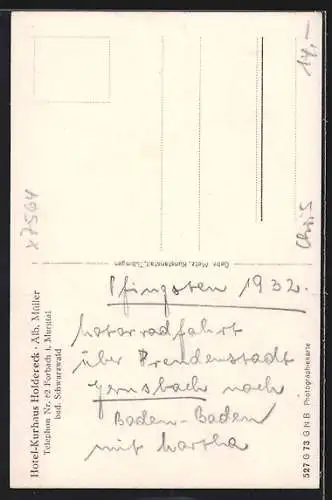 Pfingsten 1932.
Motorradfahrt
über Freudenstadt
Gernsbach nach
Baden-Baden
mit Martha
Hotel-Kurhaus Holdereck · Alb. Müller
Telephon Nr. 82 Forbach i. Murgtal
bad. Schwarzwald
Gebr. Metz, Kunstanstalt, Tübingen
527 G 73 G N B Photographiekarte
x7564
14,-